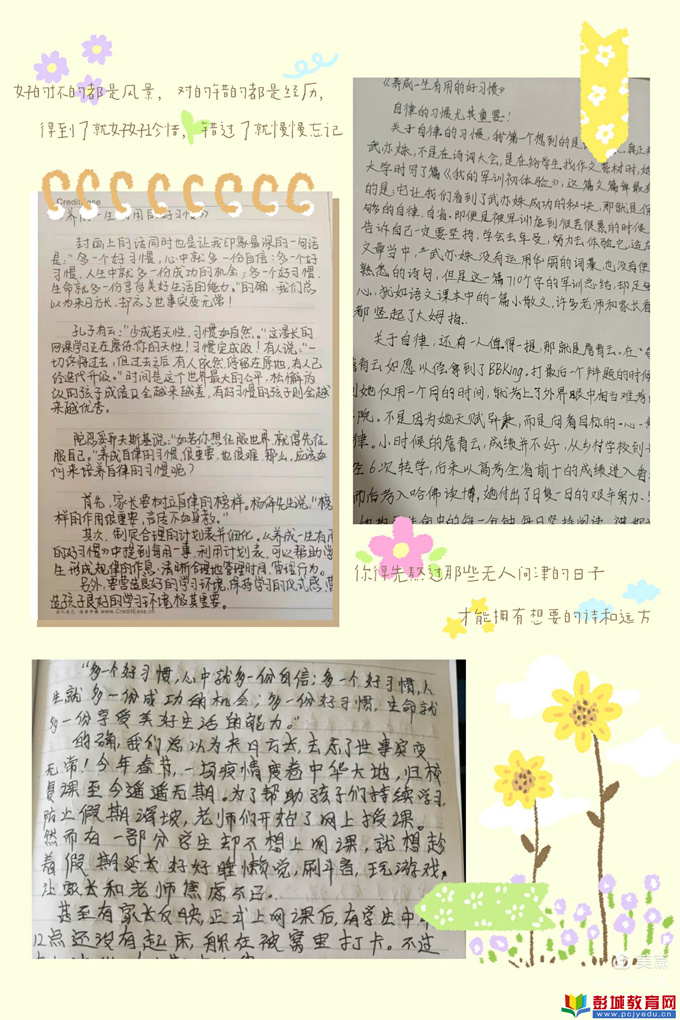 好的坏的都是风景，对的错的都是经历，
得到了就好好珍惜，错过了就慢慢忘记
CreditEase
《养成一生有用的好习惯》
封面上的话同时也是让我印象最深的一句话
是：“多一个好习惯，心中就多一份自信；多一个好习
惯，人生中就多一份成功的机会；多一个好习惯，
生命就多一份享受美好生活的能力。”的确，我们总
以为来日方长，却忘了世事突变无常！
孔子有云：“少成若天性，习惯如自然。”这漫长的
网课学习正在磨练你的天性！习惯完成败！有人说：“一
切终将过去，但过去之后，有人依然停留在原地，有人已
经迭代升级。”时间是这个世界最大的公平，松懈
的孩子成绩只会越来越差，有好习惯的孩子则会越
来越优秀。
陀思妥耶夫斯基说：“如若你想征服世界，就得先征
服自己。”养成自律的习惯，很重要，也很难，那么，应该如
何来培养自律的习惯呢？
首先，家长要树立自律的榜样。杨绛先生说：“榜
样的作用很重要，言传不如身教。”
其次，制定合理的计划表并细化。《养成一生有用
的好习惯》中提到每周一事，利用计划表，可以帮助学
生形成规律的作息，清晰合理地管理时间，管理行为。
另外，要营造良好的学习环境，保持学习的仪式感，营
造孩子良好的学习环境极其重要。
www.CreditEase.cn
《养成一生有用的好习惯》
自律的习惯尤其重要！
关于自律的习惯，我第一个想到的是
武亦姝，不是在诗词大会，是在给学生找作文素材时，她
大学时写了篇《我的军训初体验》，这篇文篇幅最
的是：它让我们看到了武亦姝成功的秘诀，那就是
够的自律、自省。即便是被军训虐到很苦很累的时候
告诉自己一定要坚持，学会去享受，努力去体验它。这
文章当中，武亦姝没有运用华丽的词藻，也没有使
熟悉的诗句，但是这一篇710个字的军训总结，却足
心，犹如语文课本中的一篇小散文，许多老师和家长看
都竖起了大姆指。
关于自律，还有一人值得一提，那就是詹青云。在
詹青云如愿以偿得到了BBKing。打最后一个辩题的时候
到她仅用一个月的时间，就考上了外界眼中相当难考
院。不是因为她天赋异禀，而是向着目标的一心一
律。小时候的詹青云，成绩并不好，从乡村学校到
在6次转学，后来以高考全省前十的成绩进入香
而后考入哈佛读博，她付出了日复一日的艰辛努力
生命中的每一分钟，每日坚持阅读
你得先熬过那些无人问津的日子
才能拥有想要的诗和远方
“多一个好习惯，心中就多一份自信；多一个好习惯，人
生就多一份成功的机会；多一份好习惯，生命就
多一份享受美好生活的能力。”
的确，我们总以为来日方长，去忘了世事突变
无常！今年春节，一场疫情席卷中华大地，归校
复课至今遥遥无期。为了帮助孩子们持续学习
防止假期滑坡，老师们开始了网上授课。
然而有一部分学生却不想上网课，就想趁
着假期延长好好睡懒觉，刷抖音，玩游戏，
让家长和老师焦虑不已。
甚至有家长反映，正式上网课后，有学生中午
12点还没有起床，躲在被窝里打卡。不过
美篇
彭城教育网
www.pcjyedu.cn